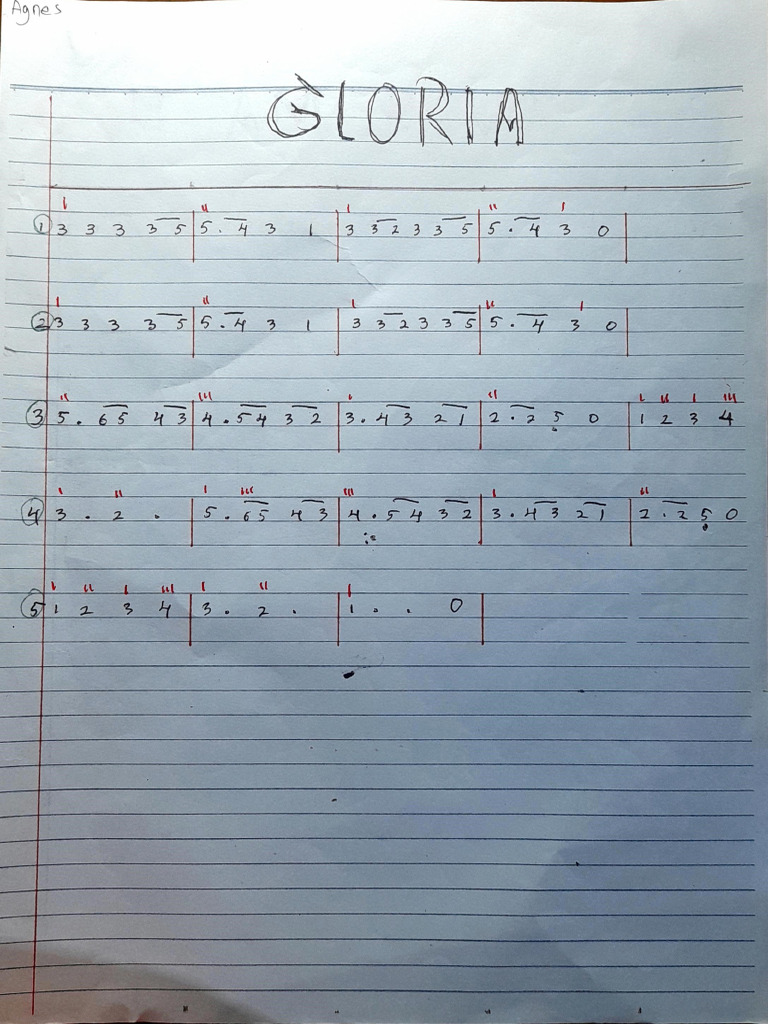 Agnes
GLORIA
① 3 3 3 3 5 | 5 . 4 3 1 | 3 3 2 3 3 5 | 5 . 4 3 0 |
② 3 3 3 3 5 | 5 . 4 3 1 | 3 3 2 3 3 5 | 5 . 4 3 0 |
③ 5 . 6 5 4 3 | 4 . 5 4 3 2 | 3 . 4 3 2 1 | 2 . 2 5 0 | 1 2 3 4
④ 3 . 2 . | 5 . 6 5 4 3 | 4 . 5 4 3 2 | 3 . 4 3 2 1 | 2 . 2 5 0
⑤ 1 2 3 4 | 3 . 2 . | 1 . . 0 |